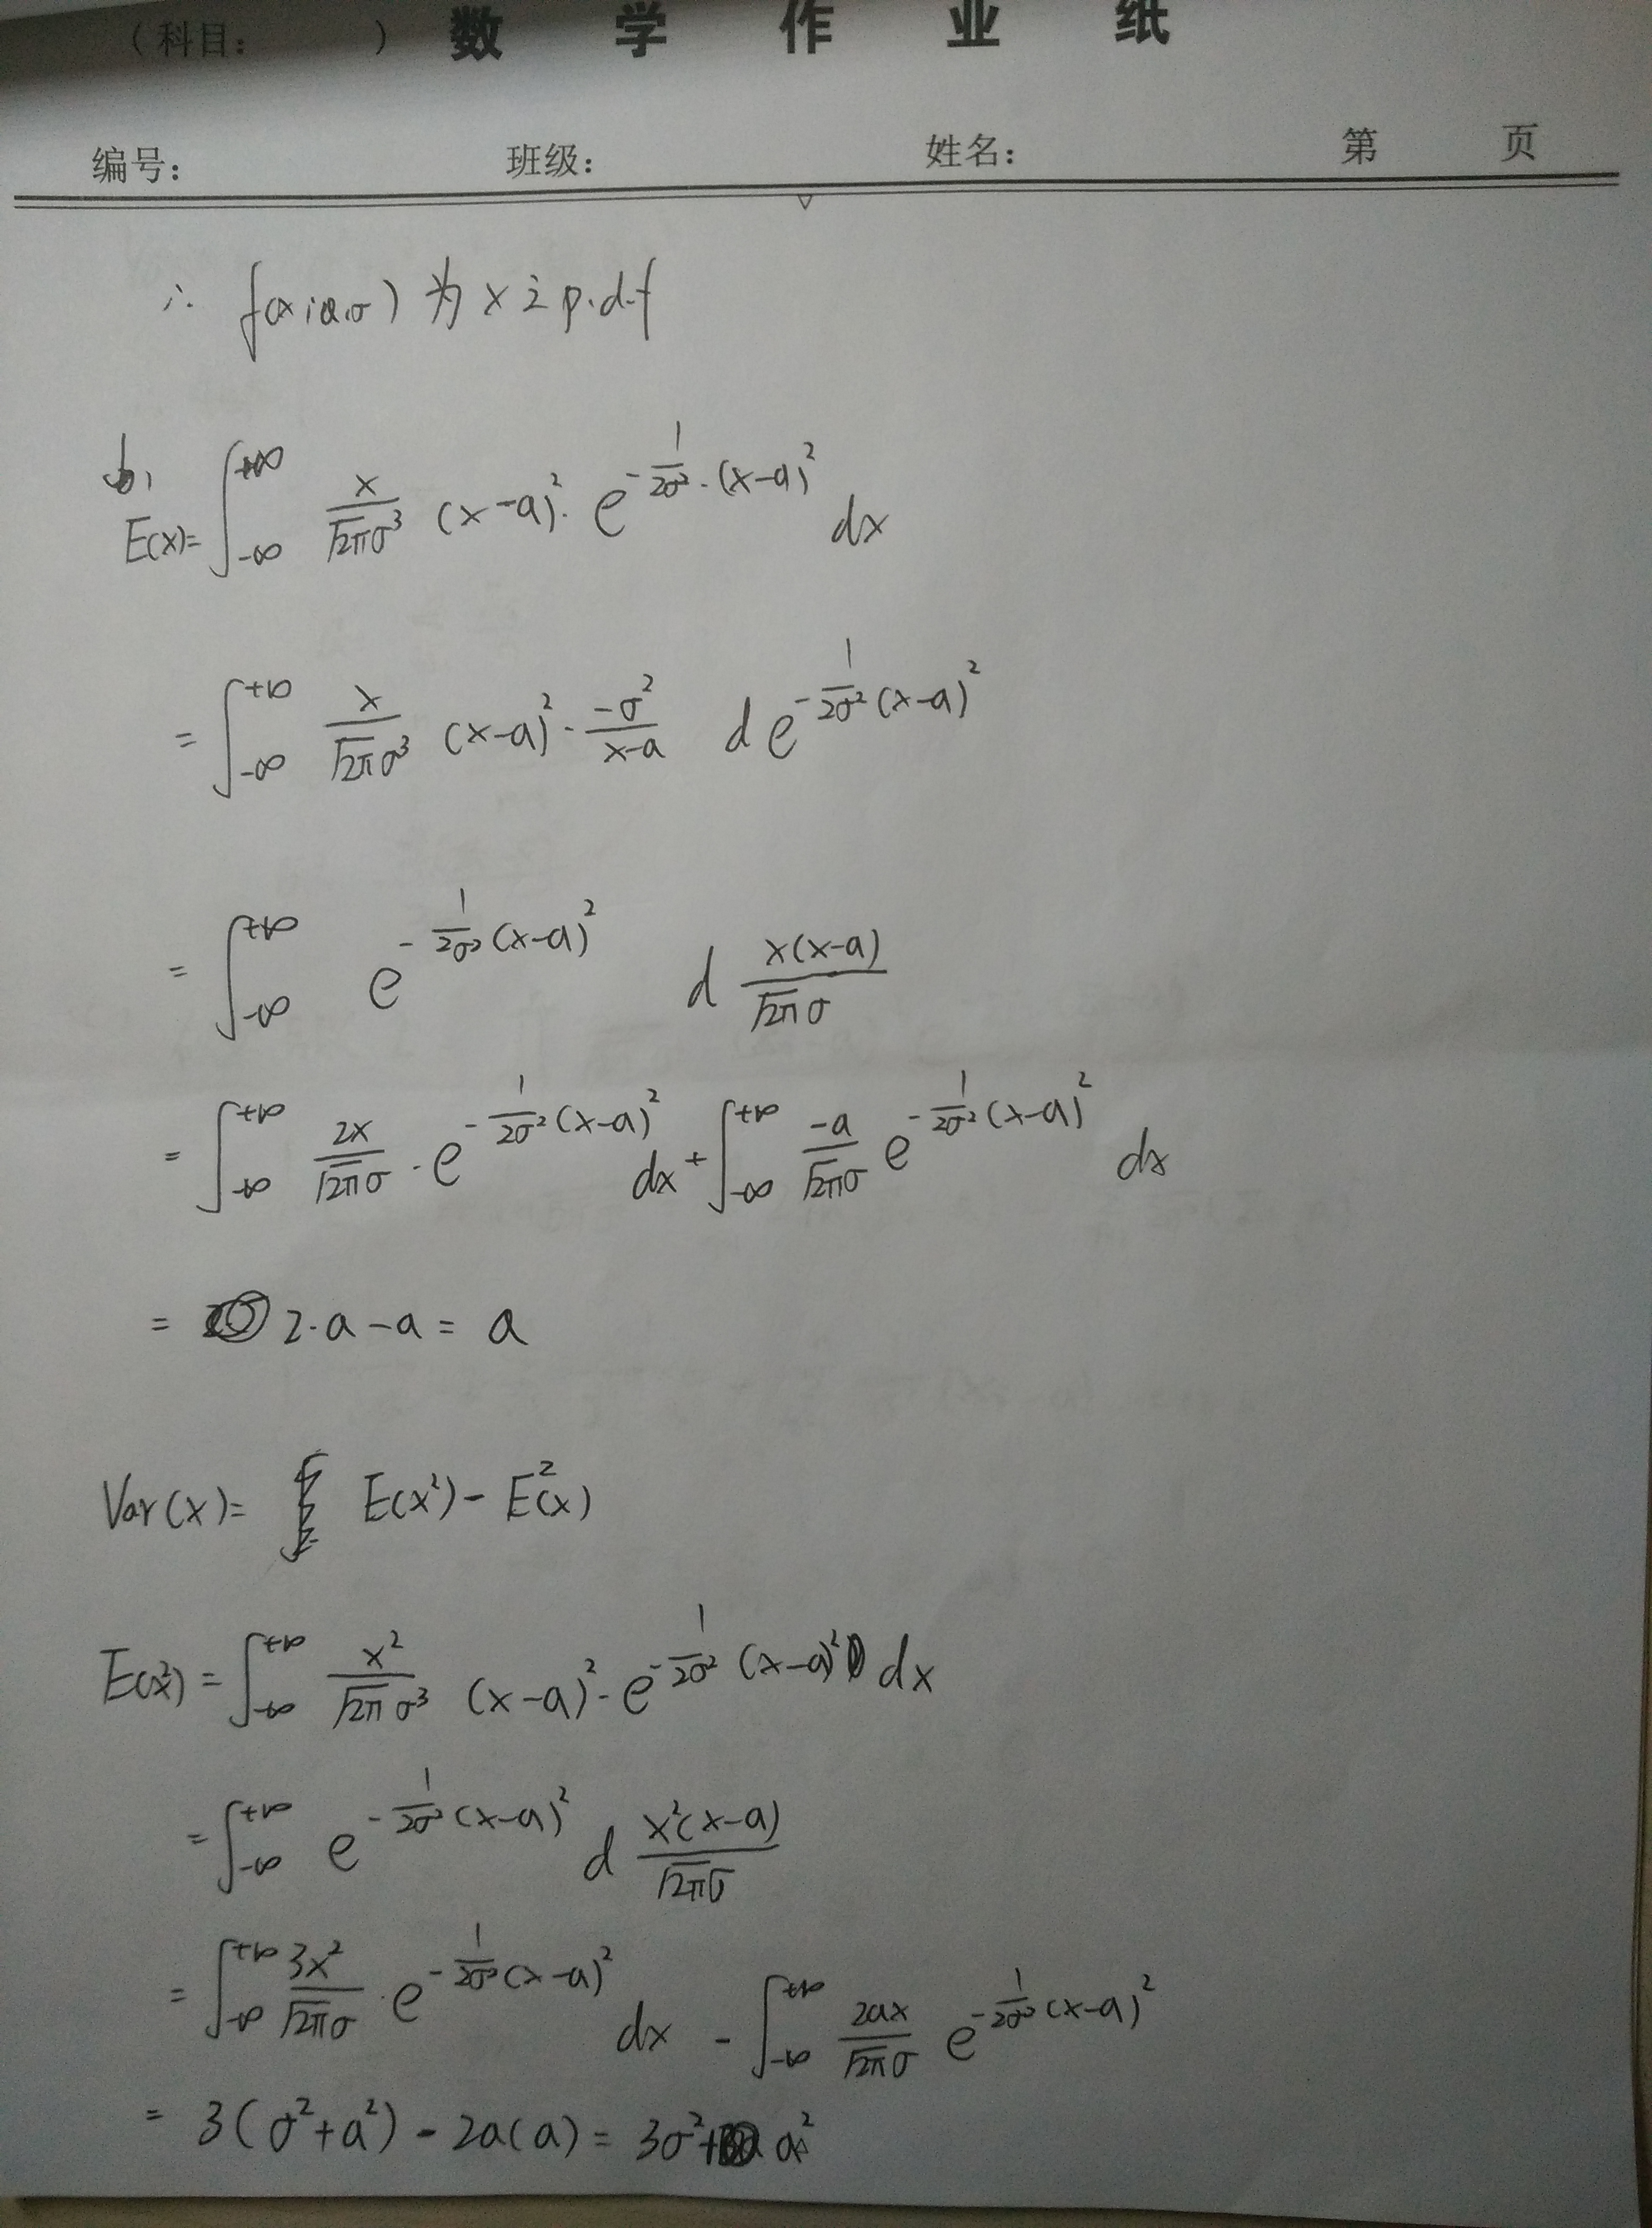 (科目: ) 数 学 作 业 纸
编号: 班级: 姓名: 第 页
∴ f(x;a,σ) 为 x 之 p.d.f
b,
E(x)= ∫_{-∞}^{+∞} \frac{x}{\sqrt{2π}σ^3} (x-a)^2 · e^{-\frac{1}{2σ^2}·(x-a)^2} dx
= ∫_{-∞}^{+∞} \frac{x}{\sqrt{2π}σ^3} (x-a)^2 · \frac{-σ^2}{x-a} d e^{-\frac{1}{2σ^2}(x-a)^2}
= ∫_{-∞}^{+∞} e^{-\frac{1}{2σ^2}(x-a)^2} d \frac{x(x-a)}{\sqrt{2π}σ}
= ∫_{-∞}^{+∞} \frac{2x}{\sqrt{2π}σ} · e^{-\frac{1}{2σ^2}(x-a)^2} dx + ∫_{-∞}^{+∞} \frac{-a}{\sqrt{2π}σ} e^{-\frac{1}{2σ^2}(x-a)^2} dx
= 2·a-a = a
Var(x)= E(x^2) - E^2(x)
E(x^2) = ∫_{-∞}^{+∞} \frac{x^2}{\sqrt{2π}σ^3} (x-a)^2 · e^{-\frac{1}{2σ^2}(x-a)^2} dx
= ∫_{-∞}^{+∞} e^{-\frac{1}{2σ^2}(x-a)^2} d \frac{x^2(x-a)}{\sqrt{2π}σ}
= ∫_{-∞}^{+∞} \frac{3x^2}{\sqrt{2π}σ} · e^{-\frac{1}{2σ^2}(x-a)^2} dx - ∫_{-∞}^{+∞} \frac{2ax}{\sqrt{2π}σ} e^{-\frac{1}{2σ^2}(x-a)^2}
= 3(σ^2+a^2) - 2a(a) = 3σ^2+a^2